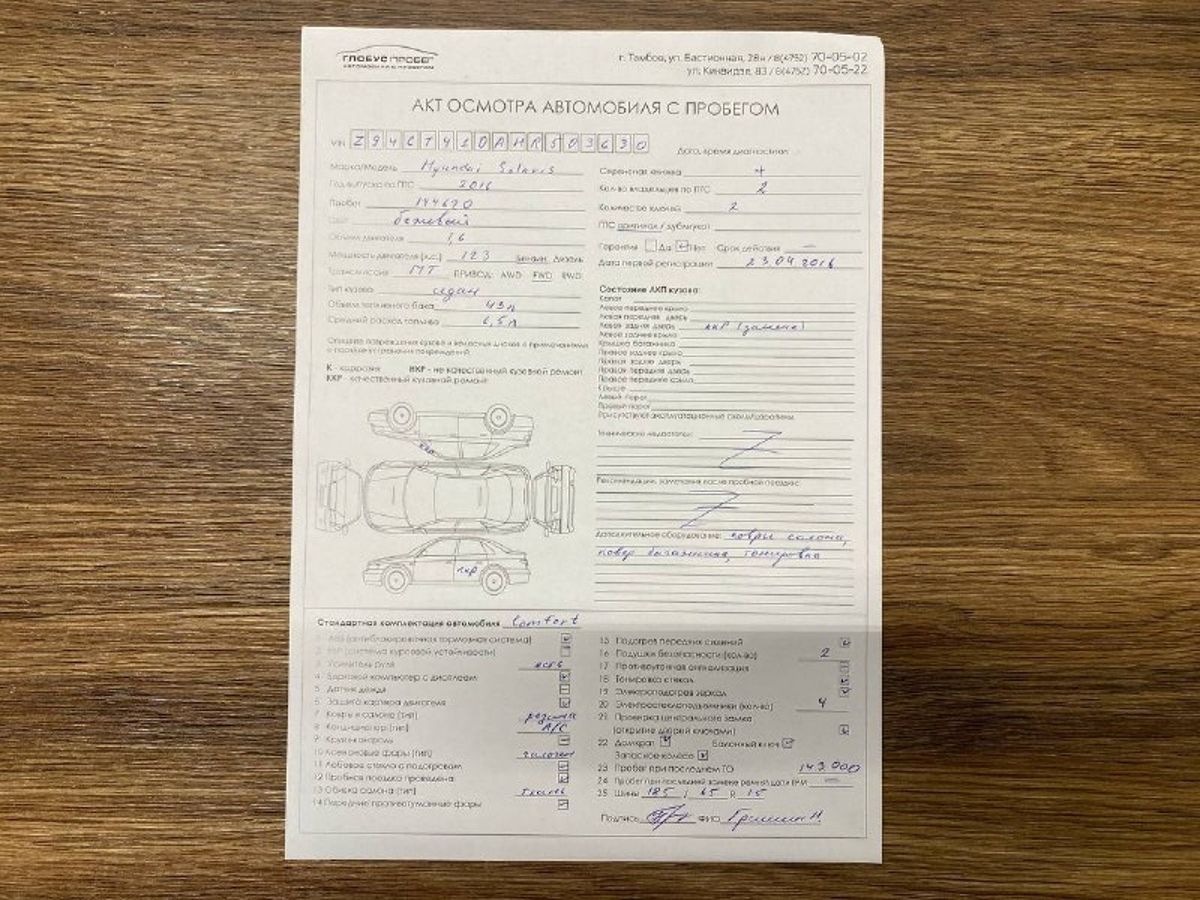 ГЛОБУС ПРОБЕГ
АВТОМОБИЛИ С ПРОБЕГОМ
г. Тамбов, ул. Бастионная, 28н / 8(4752) 70-05-02
ул. Киквидзе, 83 / 8(4752) 70-05-22
АКТ ОСМОТРА АВТОМОБИЛЯ С ПРОБЕГОМ
VIN Z94CT41DAHR503630
Дата, время диагностики
Марка/Модель Hyundai Solaris
Год выпуска по ПТС 2016
Пробег 144620
Цвет бежевый
Объем двигателя 1,6
Мощность двигателя (л.с.) 123 Бензин Дизель
Трансмиссия МТ ПРИВОД: AWD FWD RWD
Тип кузова седан
Объем топливного бака 43л
Средний расход топлива 6,5л
Сервисная книжка +
Кол-во владельцев по ПТС 2
Количество ключей 2
ПТС оригинал / дубликат
Гарантия Да Нет Срок действия —
Дата первой регистрации 23.04.2016
Опишите повреждения кузова и колесных дисков с примечаниями
К - коррозия НКР - не качественный кузовной ремонт
ККР - качественный кузовной ремонт
ККР
ККР
Состояние ЛКП кузова:
Капот
Левое переднее крыло
Левая передняя дверь
Левая задняя дверь ККР (замена)
Левое заднее крыло
Крышка багажника
Правое заднее крыло
Правая задняя дверь
Правая передняя дверь
Правое переднее крыло
Крыша
Левый порог
Правый порог
Присутствуют эксплуатационные сколы/царапины
Технические недостатки:
Рекомендации, замечания после пробной поездки:
Дополнительное оборудование: ковры салона,
ковер багажника, тонировка
Стандартная комплектация автомобиля Comfort
1 ABS (антиблокировочная тормозная система)
2 ESP (система курсовой устойчивости)
3 Усилитель руля есть
4 Бортовой компьютер с дисплеем
5 Датчик дождя
6 Защита картера двигателя
7 Ковры в салоне (тип) резина
8 Кондиционер (тип) A/C
9 Круиз-контроль
10 Ксеноновые фары (тип) галоген
11 Лобовое стекло с подогревом
12 Пробная поездка проведена
13 Обивка салона (тип) ткань
14 Передние противотуманные фары
15 Подогрев передних сидений
16 Подушки безопасности (кол-во) 2
17 Противоугонная сигнализация
18 Тонировка стекол
19 Электроподогрев зеркал
20 Электростеклоподъемники (кол-во) 4
21 Проверка центрального замка
(открытие дверей ключами)
22 Домкрат Балонный ключ
Запасное колесо
23 Пробег при последнем ТО 143.000
24 Пробег при последней замене ремня/цепи ГРМ —
25 Шины 185 / 65 R 15
Подпись ФИО Гришин Н.